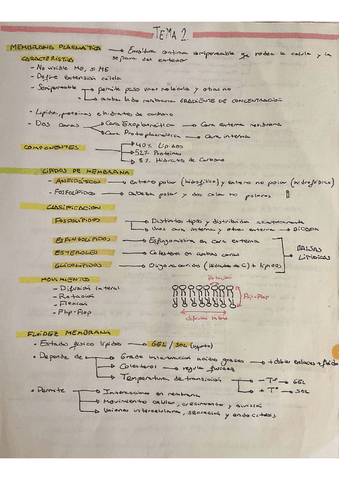 TEMA 2
MEMBRANA PLASMÁTICA → Envoltura continua semipermeable que rodea la célula y la
separa del exterior
CARACTERÍSTICAS
- No visible MO, sí ME
- Define extensión célula
- Semipermeable → permite paso unas moléculas y otras no
→ ambos lados membrana GRADIENTE DE CONCENTRACIÓN
- Lípidos, proteínas e hidratos de carbono
- Dos caras → Cara Exoplasmática → Cara externa membrana
→ Cara Protoplasmática → Cara interna
COMPONENTES → 40% Lípidos
→ 52% Proteínas
→ 8% Hidratos de Carbono
LÍPIDOS DE MEMBRANA
- ANFIPÁTICOS → extremo polar (hidrofílico) y extremo no polar (hidrofóbico)
- FOSFOLÍPIDOS → cabeza polar y dos colas no polares
CLASIFICACIÓN
FOSFOLÍPIDOS → Distintos tipos y distribución
→ Unos cara interna y otros externa → BICAPA
ESFINGOLÍPIDOS → Esfingomielina en cara externa
ESTEROLES → Colesterol en ambas caras
GLUCOLÍPIDOS → Oligosacáridos (Hidratos de C) + lípidos
BALSAS
LIPÍDICAS
MOVIMIENTOS
- Difusión lateral
- Rotación
- Flexión
- Flip-Flop
Rotación
Flip-Flop
difusión lateral
FLUIDEZ MEMBRANA
• Estado físico lípidos → GEL / SOL (líquido)
• Depende de → Grado insaturación ácidos grasos → + dobles enlaces + fluido
→ Colesterol → regula fluidez
→ Temperatura de transición → - Tª → GEL
→ + Tª → SOL
• Permite → Interacciones en membrana
→ Movimiento celular, crecimiento y división
→ Uniones intercelulares, secreción y endocitosis